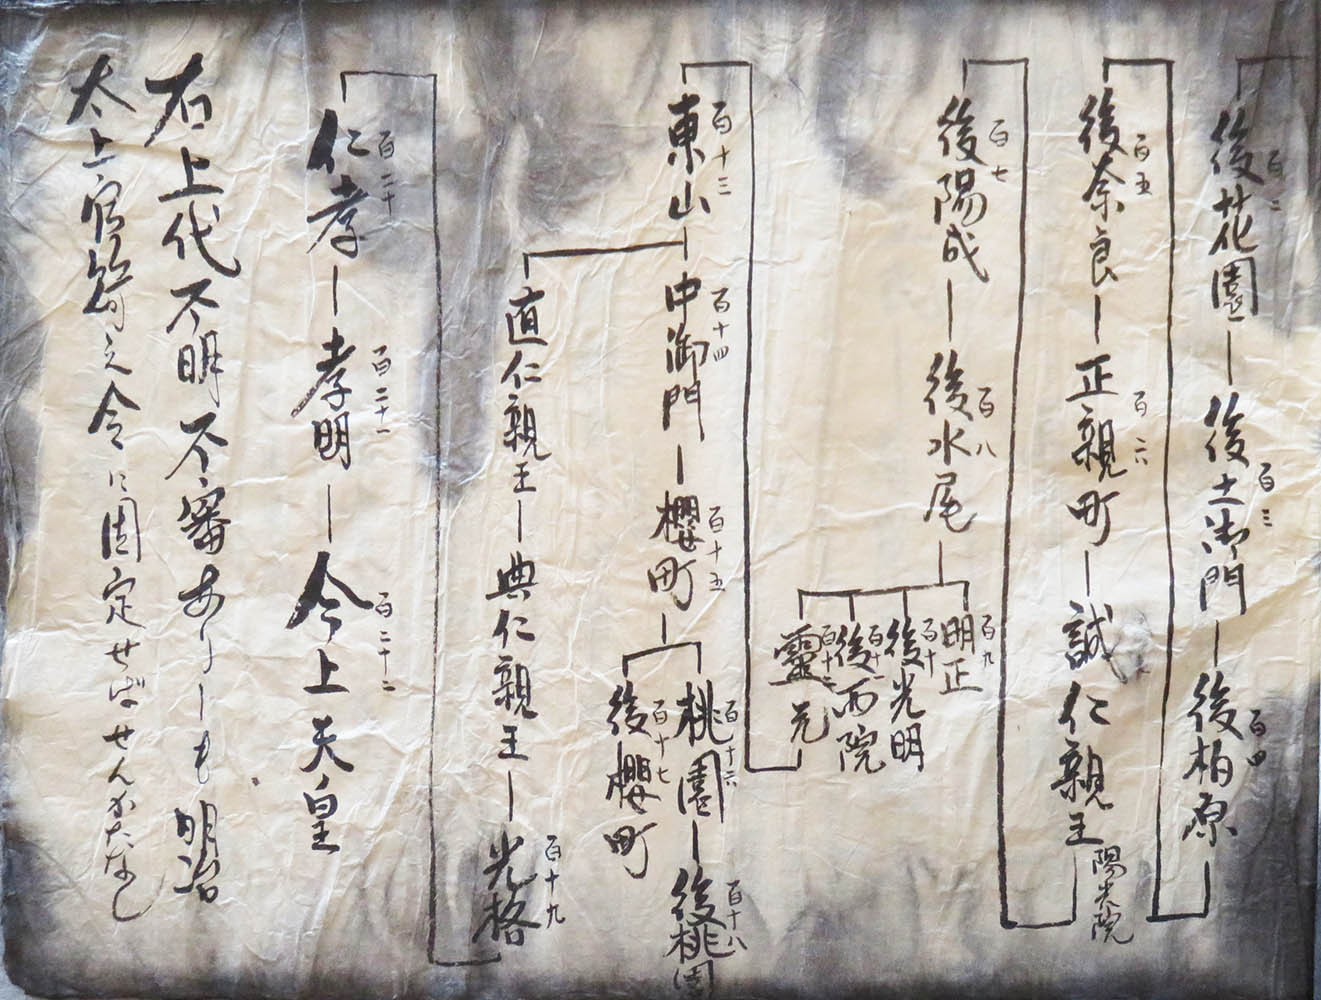 後花園 百二
後土御門 百三
後柏原 百四
後奈良 百五
正親町 百六
誠仁親王 陽光院
後陽成 百七
後水尾 百八
明正 百九
後光明 百十
後西院 百十一
靈元 百十二
東山 百十三
中御門 百十四
櫻町 百十五
桃園 百十六
後櫻町 百十七
後桃園 百十八
直仁親王
典仁親王
光格 百十九
仁孝 百二十
孝明 百二十一
今上天皇 百二十二
右上代不明不審ありしも明治
太上官符之令に固定せばせんかたなし